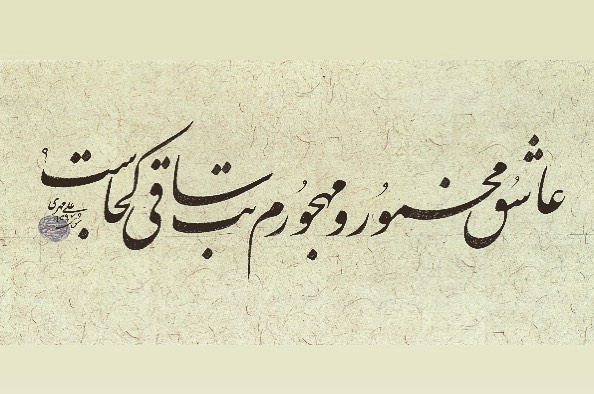 عاشق مخمور و مهجورم بت ساقی کجاست